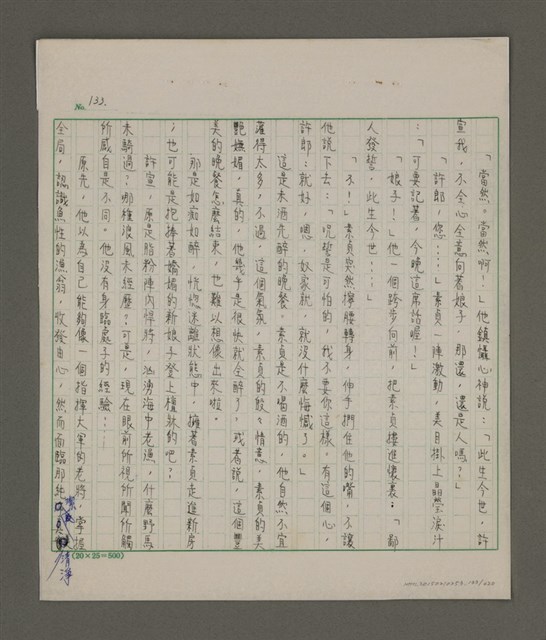 No. 133.
「當然。當然啊！」他鎮懾心神說：「此生今世，許
宣我，不全心全意向著娘子，那還，還是人嗎？」
「許郎，您……」素貞一陣激動，美目掛上晶瑩淚汁
：「可要記著，今晚這席話喔！」
「娘子！」他一個跨步向前，把素貞摟進懷裏：「鄙
人發誓，此生今世……」
「不！」素貞突然擰腰轉身，伸手捫住他的嘴，不讓
他說下去：「咒誓是可怕的，我不要你這樣。有這個心，
許郎：就好，嗯，奴家就，就沒什麼悔憾了。」
這是未酒先醉的晚餐。素貞是不喝酒的，他自然不宜
灌得太多，不過，這個氣氛，素貞的殷殷情意，素貞的美
艷嫵媚，真的，他幾乎是很快就全醉了。或者說，這個豐
美的晚餐怎麼結束，他難以想像出來啦。
那是如痴如醉，恍惚迷離狀態中，擁著素貞走進新房
；也可能是把捧著嬌媚的新娘子登上寢牀的吧？
許宣，原是脂粉陣內悍將，汹湧海中老漁，什麼野馬
未騎過？那種浪風未經歷？可是，現在眼前所視所聞所觸
所感自是不同。他沒有身臨處子的經驗……
原先，他以為自己能夠像一個指揮大軍的老將，掌握
全局，認識魚性的漁翁，收發由心，然而面臨那純
清淨
(20×25=500)